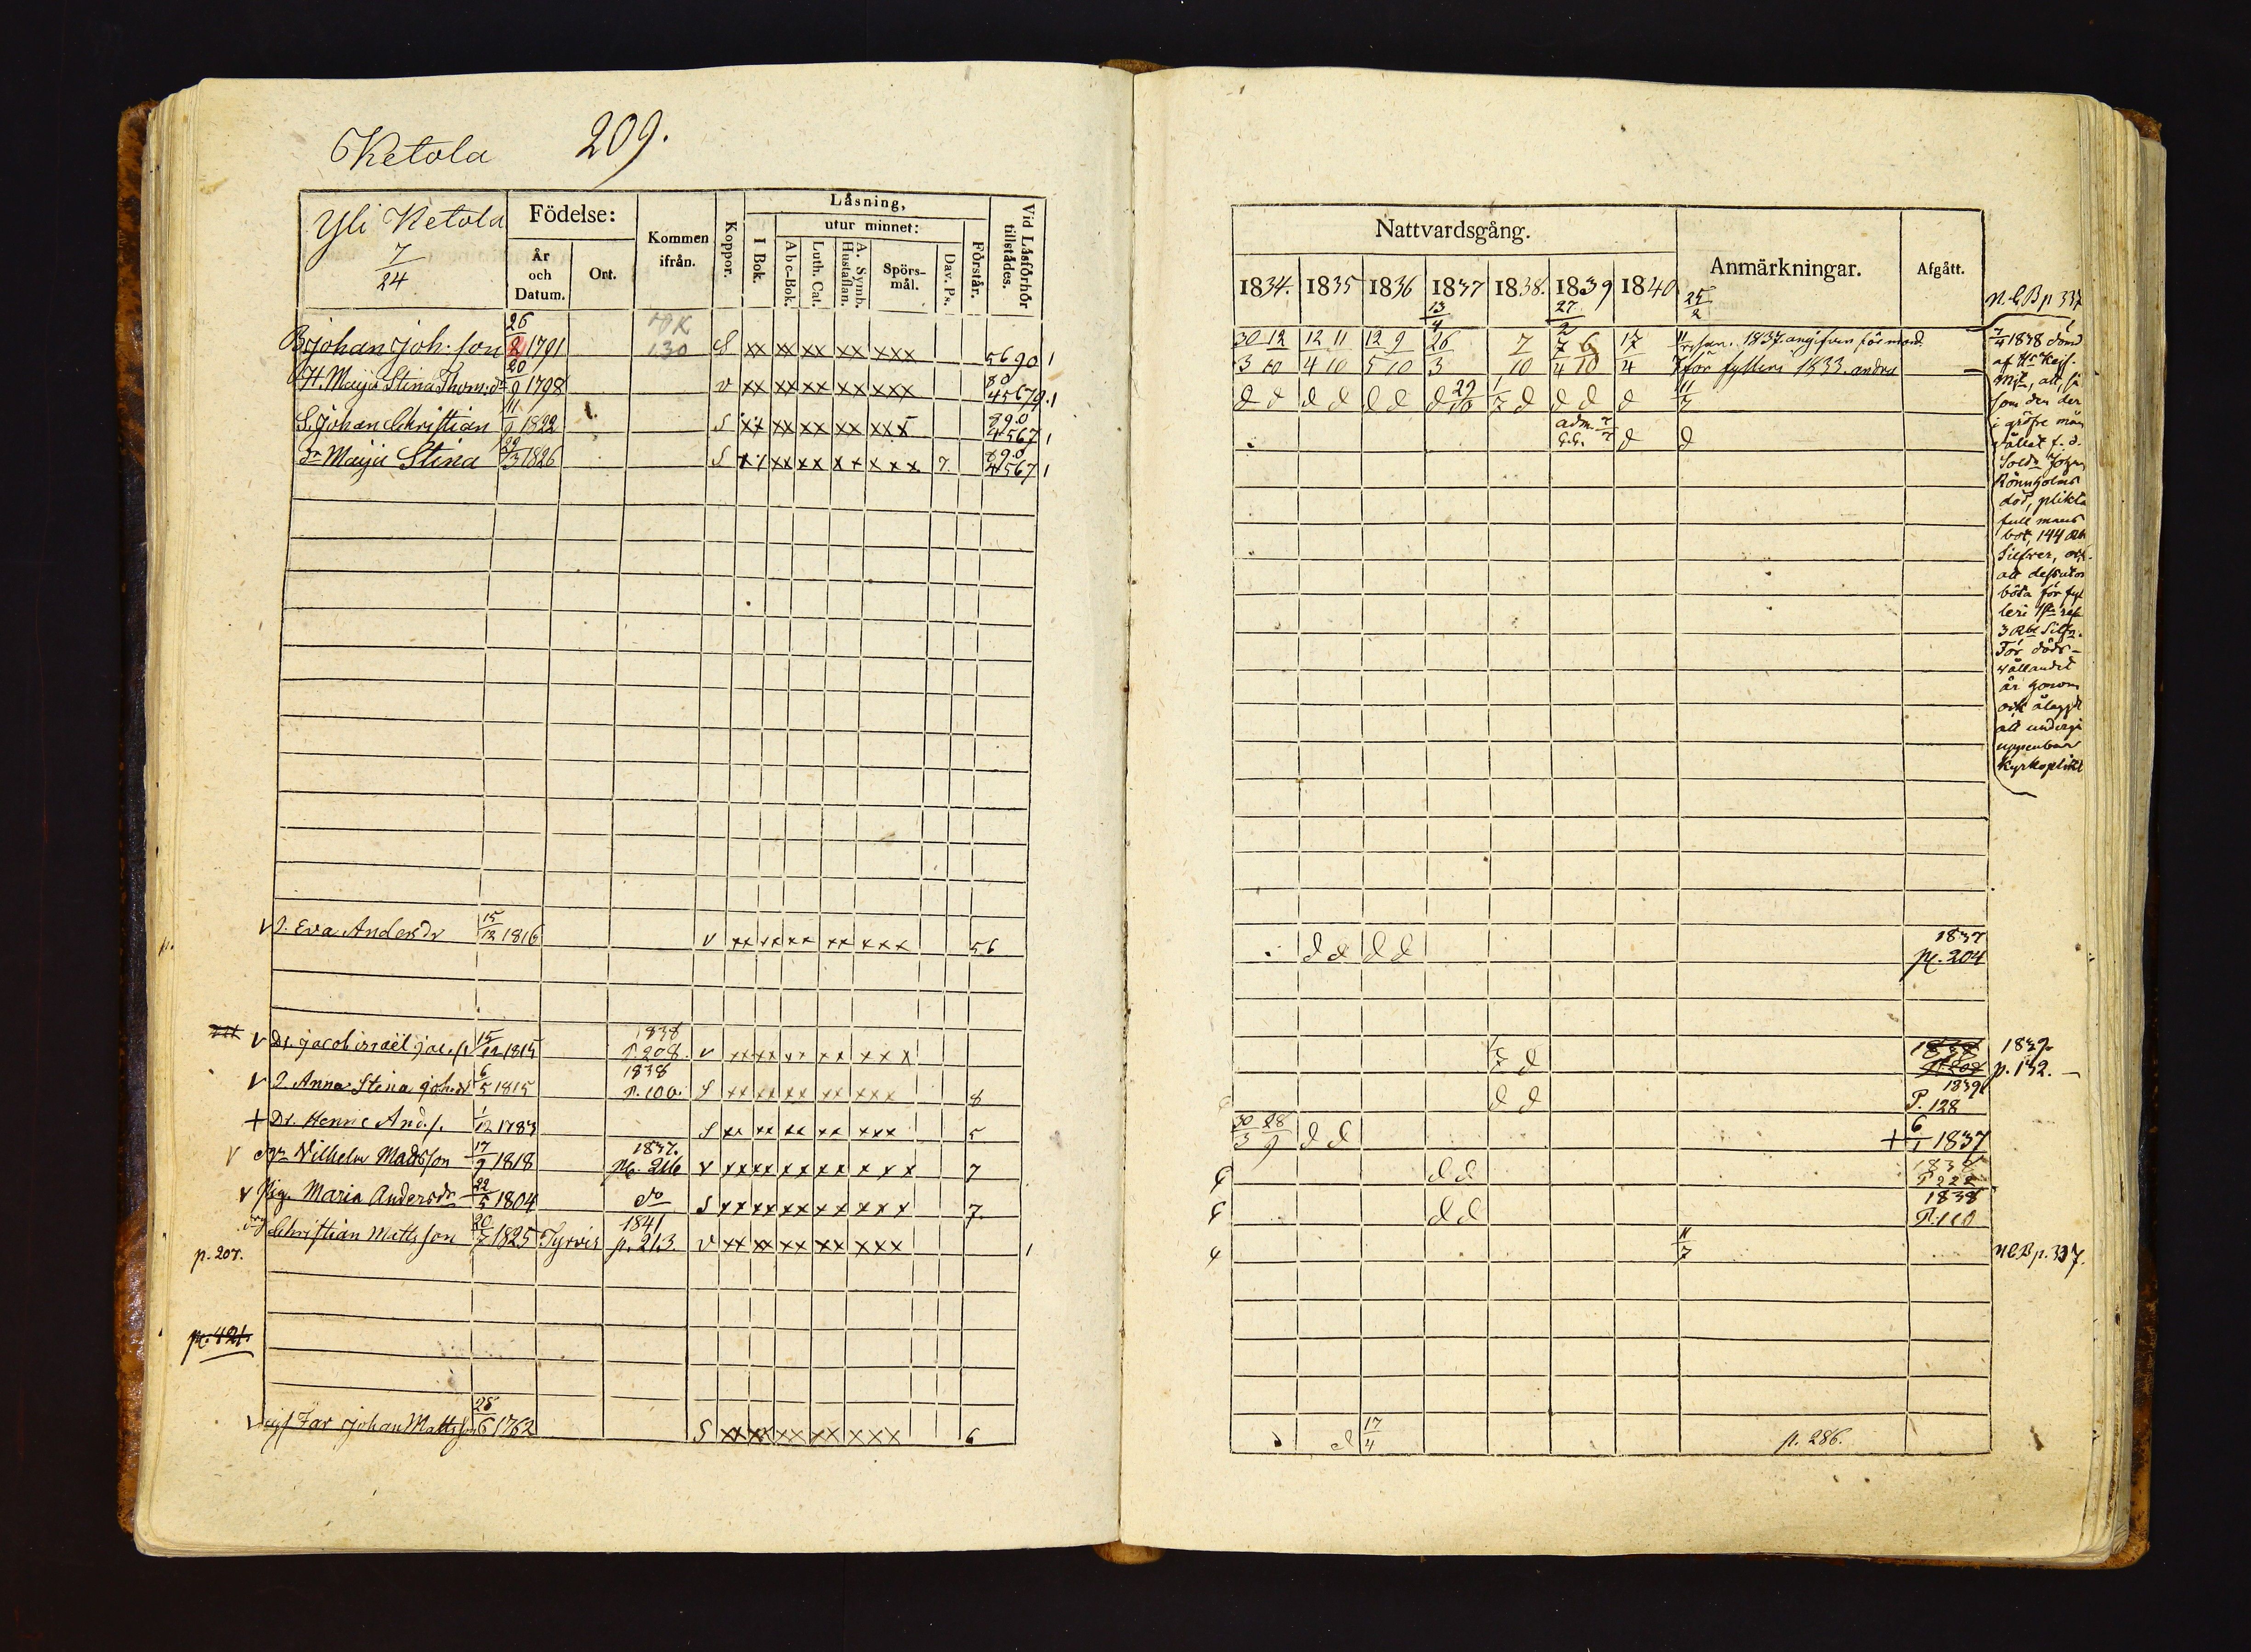 Ketola 209.
Yli Ketola
7
24
Födelse:
År och Datum.
Ort.
Kommen ifrån.
Koppor.
Läsning,
I Bok.
utur minnet:
Abc-Bok.
Luth. Cat.
A. Symb. Hustaflan.
Spörs-mål.
Dav. Ps.
Förstår.
Vid Läsförhör tillstädes.
B Johan Joh. son 26/2 1791 130 S xx xx xx xx xxx 5690 1
H. Maija Stina Thom.dr 20/9 1798 v xx xx xx xx xxx 80 45679. 1
S. Johan Christian 11/9 1822 S xx xx xx xx xxx 890 4567 1
dr Maija Stina 29/3 1826 S xx xx xx xx xxx 7 890 4567 1
v J. Eva Andersdr 15/12 1816 v xx xx xx xx xxx 56
v Dr. Jacob israël Jac.s. 15/12 1815 1838 p. 208 v xx xx xx xx xxx
v J Anna Stina Joh.dr 6/5 1815 1838 p. 100. S xx xx xx xx xxx 8
+ Dr. Henric And.s. 1/12 1783 S xx xx xx xx xxx 5
v Wilhelm Madsson 17/9 1818 1837. p. 216 v xx xx xx xx xxx 7
v Pig. Maria Andersdr 22/5 1804 do S xx xx xx xx xxx 7.
Christian Mattsson 20/7 1825 Tyrvis 1841 p. 213. v xx xx xx xx xxx 1
p. 207.
p. 421.
v Far Johan Mattsson 28/6 1762 S xx xx xx xx xxx 6
Nattvardsgång.
Anmärkningar.
Afgått.
1834. 1835 1836 1837 1838. 1839 1840
13/4 27/2 25/2
N. C. B p 337
30/3 12/10 12/4 11/10 12/5 9/10 26/3 7/10 7/4 6/10 17/4 1837. angifven för mord.
för fylleri 1833. andra
d d d d d d d 29/10 1/7 d d d d 11/7
adm. d d
7/4 1838 dömd
af Hs Kejs.
Mjt, att, så
som den der
i gröfre mån
vållat f. d.
Sold. Johan
Rönnholms
död, plikta
full mans
bot, 144 Rb
Silfver, och
att dessutom
böta för fyl
leri
3 Rbl Silfr.
För döds-
vållandet
är honom
ock ålagdt
att undergå
uppenbar
Kyrkoplikt
d d d d 1837 p. 204
1/7 d 1839. p. 132.
d d 1839 P. 128
30/3 28/9 d d + 6/1 1837
d d 1838 P 222
d d 1838 P. 110
11/7 N C B p. 337.
d 17/4 p. 286.